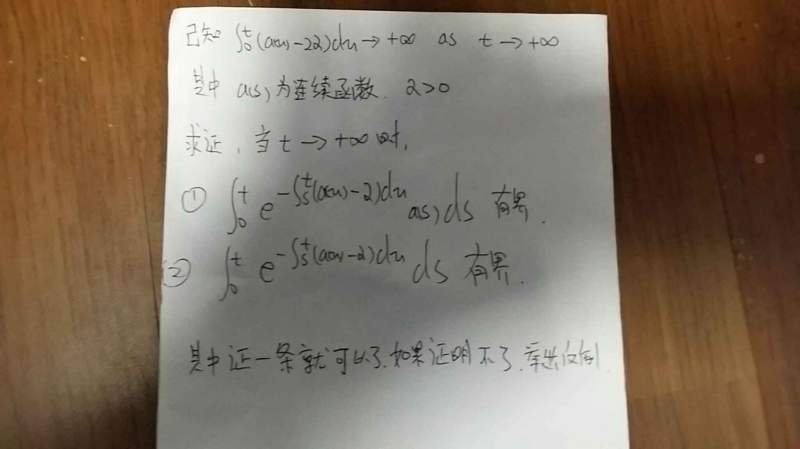 已知 ∫₀ᵗ(a(u)-2λ)du → +∞ as t → +∞
其中 a(s)为连续函数. λ>0
求证, 当 t → +∞ 时,
① ∫₀ᵗ e^{-∫ₛᵗ(a(u)-λ)du} a(s)ds 有界.
② ∫₀ᵗ e^{-∫ₛᵗ(a(u)-λ)du} ds 有界.
其中证一条就可以了.如果证明不了.举出反例